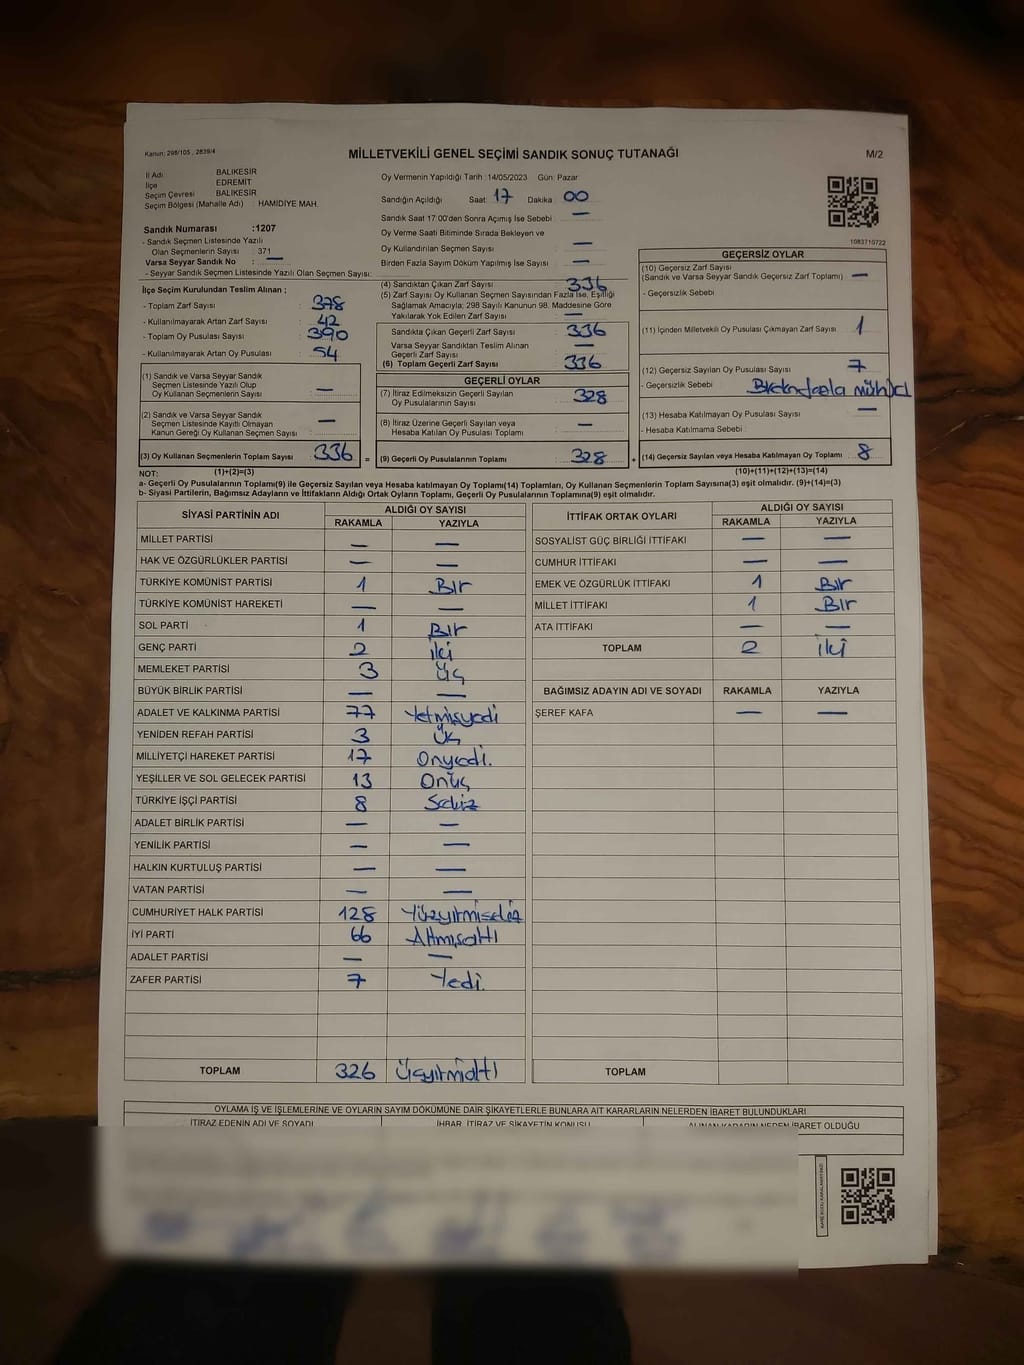 Kanun: 298/105 , 2839/4
MİLLETVEKİLİ GENEL SEÇİMİ SANDIK SONUÇ TUTANAĞI
M/2
İl Adı BALIKESİR
İlçe EDREMİT
Seçim Çevresi BALIKESİR
Seçim Bölgesi (Mahalle Adı) : HAMİDİYE MAH.
Sandık Numarası :1207
- Sandık Seçmen Listesinde Yazılı
Olan Seçmenlerin Sayısı : 371
Varsa Seyyar Sandık No : —
- Seyyar Sandık Seçmen Listesinde Yazılı Olan Seçmen Sayısı:
Oy Vermenin Yapıldığı Tarih : 14/05/2023 Gün: Pazar
Sandığın Açıldığı Saat: 17 Dakika: 00
Sandık Saat 17:00'den Sonra Açılmış İse Sebebi : —
Oy Verme Saati Bitiminde Sırada Bekleyen ve
Oy Kullandırılan Seçmen Sayısı : —
Birden Fazla Sayım Döküm Yapılmış İse Sayısı : —
1083710722
İlçe Seçim Kurulundan Teslim Alınan ;
- Toplam Zarf Sayısı : 378
- Kullanılmayarak Artan Zarf Sayısı : 42
- Toplam Oy Pusulası Sayısı : 390
- Kullanılmayarak Artan Oy Pusulası : 54
(1) Sandık ve Varsa Seyyar Sandık
Seçmen Listesinde Yazılı Olup
Oy Kullanan Seçmenlerin Sayısı : —
(2) Sandık ve Varsa Seyyar Sandık
Seçmen Listesinde Kayıtlı Olmayan
Kanun Gereği Oy Kullanan Seçmen Sayısı : —
(3) Oy Kullanan Seçmenlerin Toplam Sayısı : 336
(1)+(2)=(3)
(4) Sandıktan Çıkan Zarf Sayısı : 336
(5) Zarf Sayısı Oy Kullanan Seçmen Sayısından Fazla İse, Eşitliği
Sağlamak Amacıyla; 298 Sayılı Kanunun 98. Maddesine Göre
Yakılarak Yok Edilen Zarf Sayısı : —
Sandıkta Çıkan Geçerli Zarf Sayısı : 336
Varsa Seyyar Sandıktan Teslim Alınan
Geçerli Zarf Sayısı : —
(6) Toplam Geçerli Zarf Sayısı : 336
GEÇERLİ OYLAR
(7) İtiraz Edilmeksizin Geçerli Sayılan
Oy Pusulalarının Sayısı : 328
(8) İtiraz Üzerine Geçerli Sayılan veya
Hesaba Katılan Oy Pusulası Toplamı : —
= (9) Geçerli Oy Pusulalarının Toplamı : 328 +
GEÇERSİZ OYLAR
(10) Geçersiz Zarf Sayısı
(Sandık ve Varsa Seyyar Sandık Geçersiz Zarf Toplamı) : —
- Geçersizlik Sebebi :
(11) İçinden Milletvekili Oy Pusulası Çıkmayan Zarf Sayısı : 1
(12) Geçersiz Sayılan Oy Pusulası Sayısı : 7
- Geçersizlik Sebebi :
(13) Hesaba Katılmayan Oy Pusulası Sayısı : —
- Hesaba Katılmama Sebebi :
(14) Geçersiz Sayılan veya Hesaba Katılmayan Oy Toplamı : 8
(10)+(11)+(12)+(13)=(14)
NOT:
a- Geçerli Oy Pusulalarının Toplamı(9) ile Geçersiz Sayılan veya Hesaba katılmayan Oy Toplamı(14) Toplamları, Oy Kullanan Seçmenlerin Toplam Sayısına(3) eşit olmalıdır. (9)+(14)=(3)
b- Siyasi Partilerin, Bağımsız Adayların ve İttifakların Aldığı Ortak Oyların Toplamı, Geçerli Oy Pusulalarının Toplamına(9) eşit olmalıdır.
SİYASİ PARTİNİN ADI ALDIĞI OY SAYISI
RAKAMLA YAZIYLA
MİLLET PARTİSİ — —
HAK VE ÖZGÜRLÜKLER PARTİSİ — —
TÜRKİYE KOMÜNİST PARTİSİ 1 Bir
TÜRKİYE KOMÜNİST HAREKETİ — —
SOL PARTİ 1 Bir
GENÇ PARTİ 2 iki
MEMLEKET PARTİSİ 3 Üç
BÜYÜK BİRLİK PARTİSİ — —
ADALET VE KALKINMA PARTİSİ 77 Yetmişyedi
YENİDEN REFAH PARTİSİ 3 Üç
MİLLİYETÇİ HAREKET PARTİSİ 17 Onyedi.
YEŞİLLER VE SOL GELECEK PARTİSİ 13 Onüç
TÜRKİYE İŞÇİ PARTİSİ 8 Sekiz
ADALET BİRLİK PARTİSİ — —
YENİLİK PARTİSİ — —
HALKIN KURTULUŞ PARTİSİ — —
VATAN PARTİSİ — —
CUMHURİYET HALK PARTİSİ 128 Yüzyirmisekiz
İYİ PARTİ 66 Altmışaltı
ADALET PARTİSİ — —
ZAFER PARTİSİ 7 Yedi.
TOPLAM 326 Üçyirmialtı
İTTİFAK ORTAK OYLARI ALDIĞI OY SAYISI
RAKAMLA YAZIYLA
SOSYALİST GÜÇ BİRLİĞİ İTTİFAKI — —
CUMHUR İTTİFAKI — —
EMEK VE ÖZGÜRLÜK İTTİFAKI 1 Bir
MİLLET İTTİFAKI 1 Bir
ATA İTTİFAKI — —
TOPLAM 2 iki
BAĞIMSIZ ADAYIN ADI VE SOYADI RAKAMLA YAZIYLA
ŞEREF KAFA — —
TOPLAM
OYLAMA İŞ VE İŞLEMLERİNE VE OYLARIN SAYIM DÖKÜMÜNE DAİR ŞİKAYETLERLE BUNLARA AİT KARARLARIN NELERDEN İBARET BULUNDUKLARI
İTİRAZ EDENİN ADI VE SOYADI İHBAR, İTİRAZ VE ŞİKAYETİN KONUSU ALINAN KARARIN NEDEN İBARET OLDUĞU